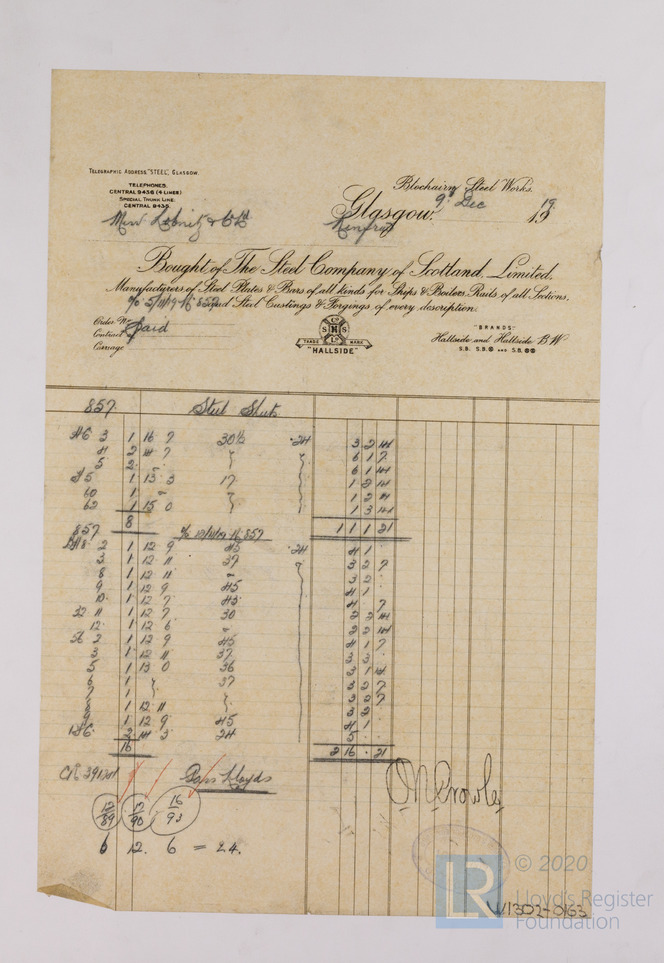 TELEGRAPHIC ADDRESS, "STEEL", GLASGOW.
TELEPHONES.
CENTRAL 9436 (4 LINES)
SPECIAL TRUNK LINE.
CENTRAL 9435.
Blochairn Steel Works.
Glasgow. 9 Dec 1919
Lobnitz & Co Ld Renfrew
Bought of The Steel Company of Scotland, Limited,
Manufacturers of Steel Plates & Bars of all kinds for Ships & Boilers, Rails of all Sections,
Steel Castings & Forgings of every description.
Order No
Contract
Carriage
Co
S H S
Ld
TRADE MARK
"HALLSIDE"
"BRANDS"
Hallside and Hallside B.W
S.B. S.B. AND S.B.
857 Steel Sheets
46 3 1 16 7 30½ 24 3 2 14
4 2 14 7 6 1 7
5 2 6 1 14
45 1 15 3 17 1 2 14
60 1 1 2 14
62 1 15 0 1 3 14
8 1 1 1 21
857
2 1 12 9 45 24 4 1
3 1 12 11 37 3 2 7
8 1 12 11 3 2
9 1 12 9 45 4 1
10 1 12 7 45 4 7
32 11 1 12 7 30 2 2 14
12 1 12 6 2 2 14
56 2 1 12 9 45 4 1 7
3 1 12 11 37 3 3
5 1 13 0 36 3 1 14
6 1 37 3 2 7
7 1 3 2 7
8 1 12 11 3 2
9 1 12 9 45 4 1
146 2 14 3 24 5
16 2 16 21
Lloyds
12/89 17/90 16/93
6 12. 6 = 24.
LR
© 2020
Lloyd's Register
Foundation
W1302-0163